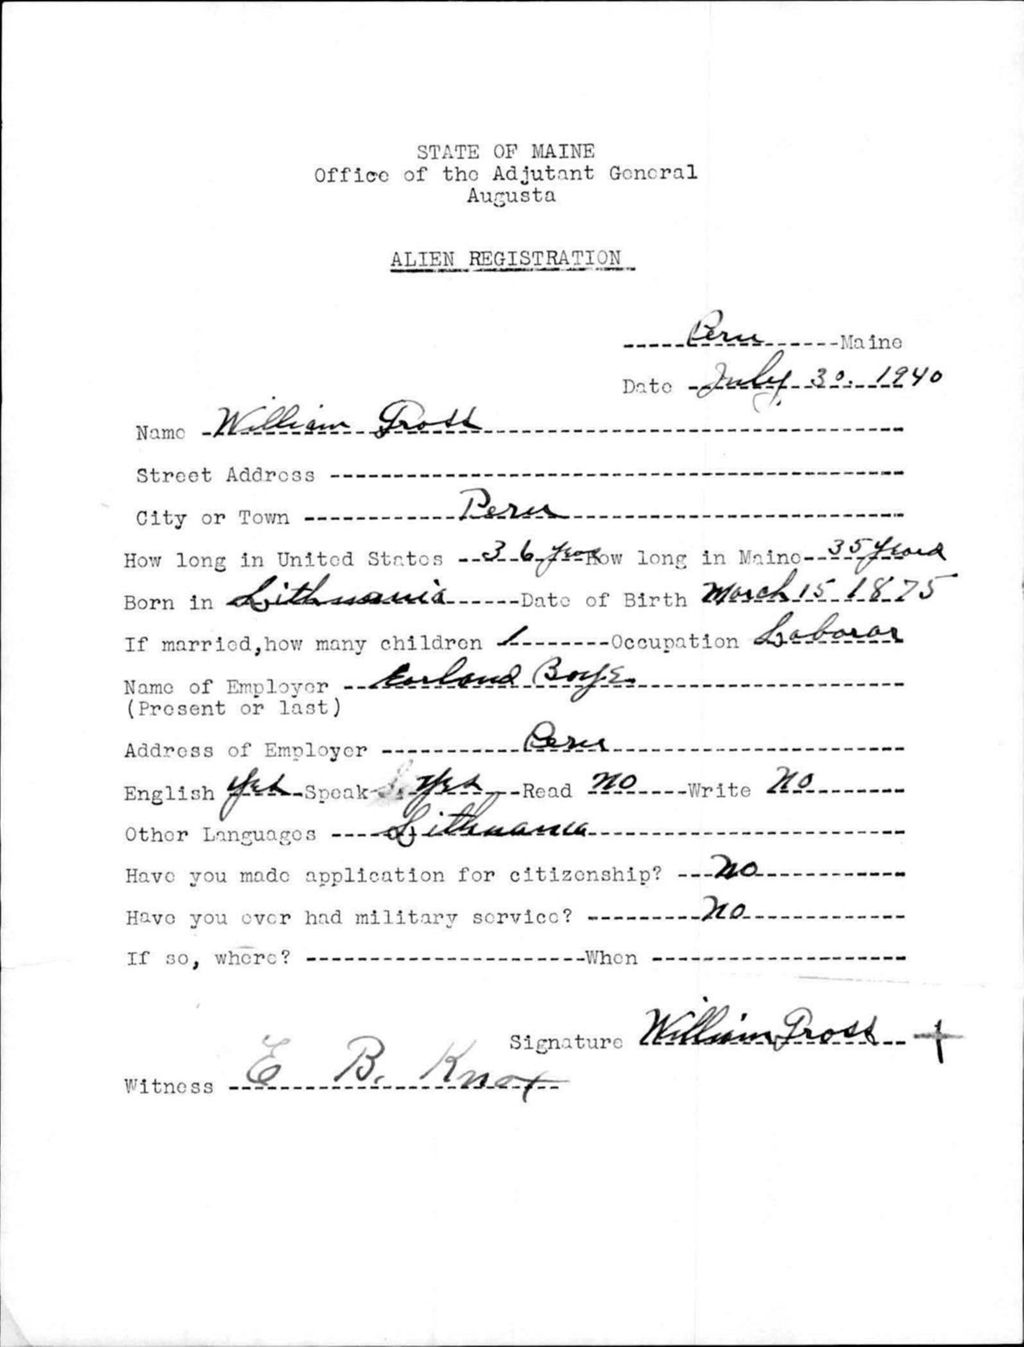 STATE OF MAINE
Office of the Adjutant General
Augusta
ALIEN REGISTRATION
Peru Maine
Date July 30, 1940
Name William Gross
Street Address
City or Town Peru
How long in United States 36 years How long in Maine 35 years
Born in Lithuania Date of Birth March 15 1875
If married, how many children 1 Occupation Laborar
Name of Employer
(Present or last)
Address of Employer Peru
English Yes Speak Yes Read No Write No
Other Languages Lithuania
Have you made application for citizenship? No
Have you ever had military service? No
If so, where? When
Signature William Gross +
Witness E B. Knox